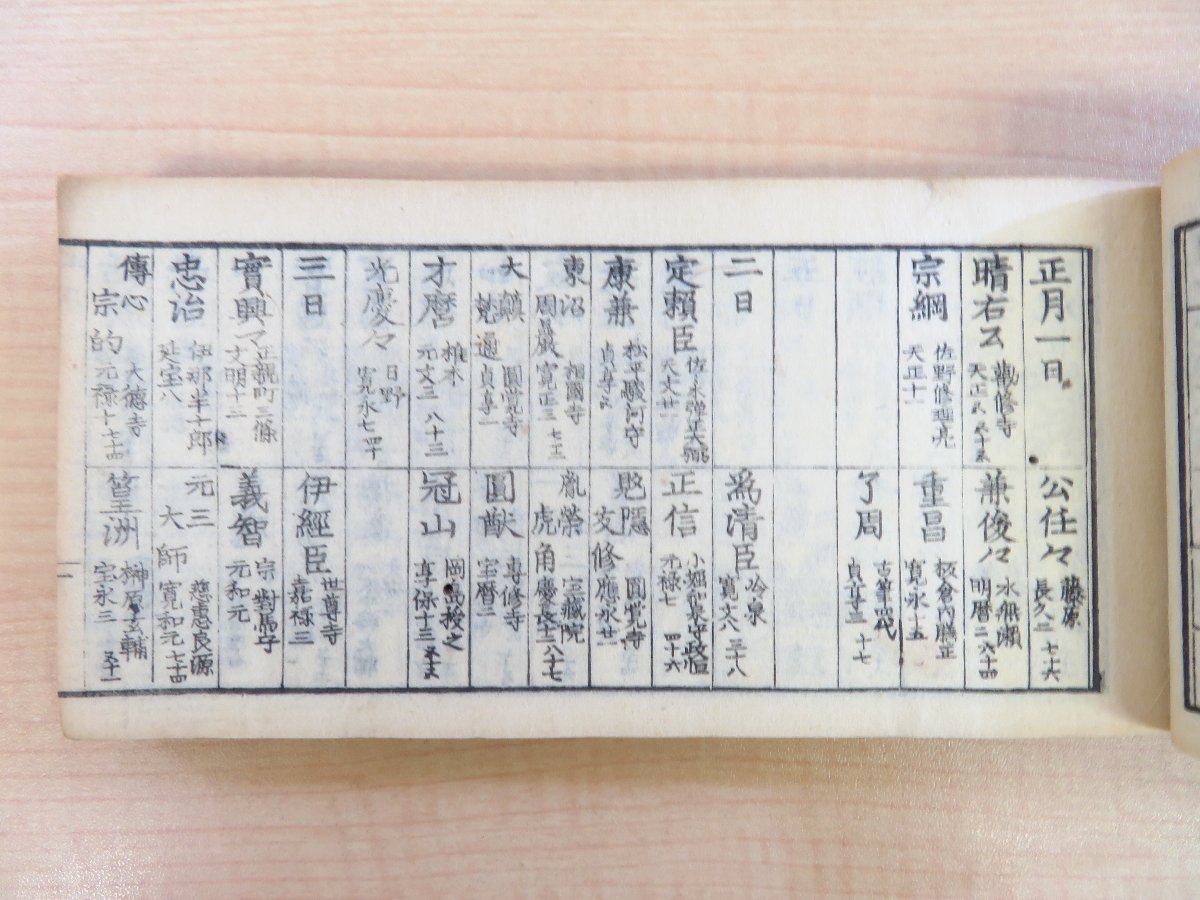 正月一日
公任々 藤原
長久二 七十六
晴右公 勧修寺
天正五 五十五
兼俊々 水無瀬
明暦二 六十四
宗綱 佐野修理亮
天正十一
重昌 板倉内膳正
寛永十五
了周 古筆四代
貞享三 十七
二日
為清臣 冷泉
寛文八 三十八
定頼臣 佐々木弾正大弼
天文廿一
正信 小堀和泉守政恒
元禄七 四十六
康兼 松平駿河守
貞享元
愚隠 圓覚寺
交修 應永廿一
東沼 相國寺
周曮 寛正三 七十二
胤榮 二 宝蔵院
虎角 慶長十二 八十七
大顛 圓覚寺
梵通 貞享二
圓猷 専修寺
宝暦二
才麿 椎本
元文三 八十三
冠山 岡島援之
享保十三 五十五
光慶々 日野
寛永七 四十
三日
伊經臣 世尊寺
嘉禄三
實興々 正親町三條
文明十三
義智 宗對馬守
元和元
忠治 伊那半十郎
延宝八
元三 慈恵良源
大師 寛和元 七十四
傳心 大徳寺
宗的 元禄十 七十四
篁洲 榊原玄輔
宝永三 五十一